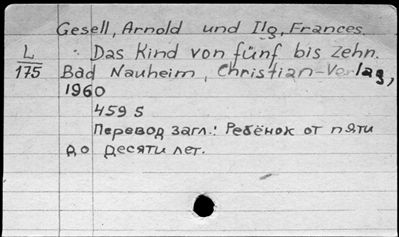 Gesell, Arnold und Ilg, Frances.
L
175
: Das Kind von fünf bis zehn.
Bad Nauheim, Christian-Verlag,
1960
459 S
Перевод загл.: Ребёнок от пяти
до десяти лет.